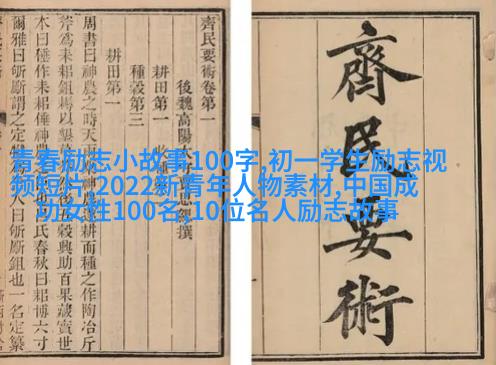 齊民要術
齊民要術卷第一
後魏高陽 撰
耕田第一
種穀第三
耕田第一
周書曰神農之時天雨 神農遂耕而種之作陶冶斤
斧為耒耜鋤耨以墾 五穀興助百果藏實世
本曰倕作耒耜倕神農 氏春秋曰耜博六寸
爾雅曰斪斸謂之定 人曰斪斸鉏也一名定纂
青春励志小故事100字,初一学生励志视
频短片,2022新青年人物素材,中国成
功女性100名,10位名人励志故事